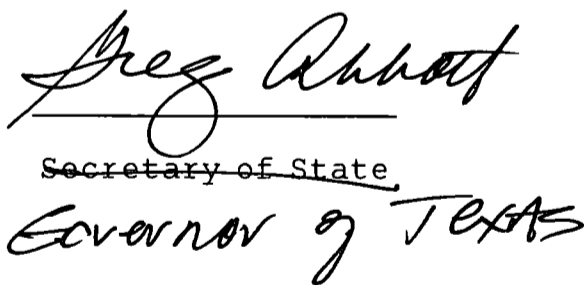 Greg Abbott
Secretary of State
Governor of Texas